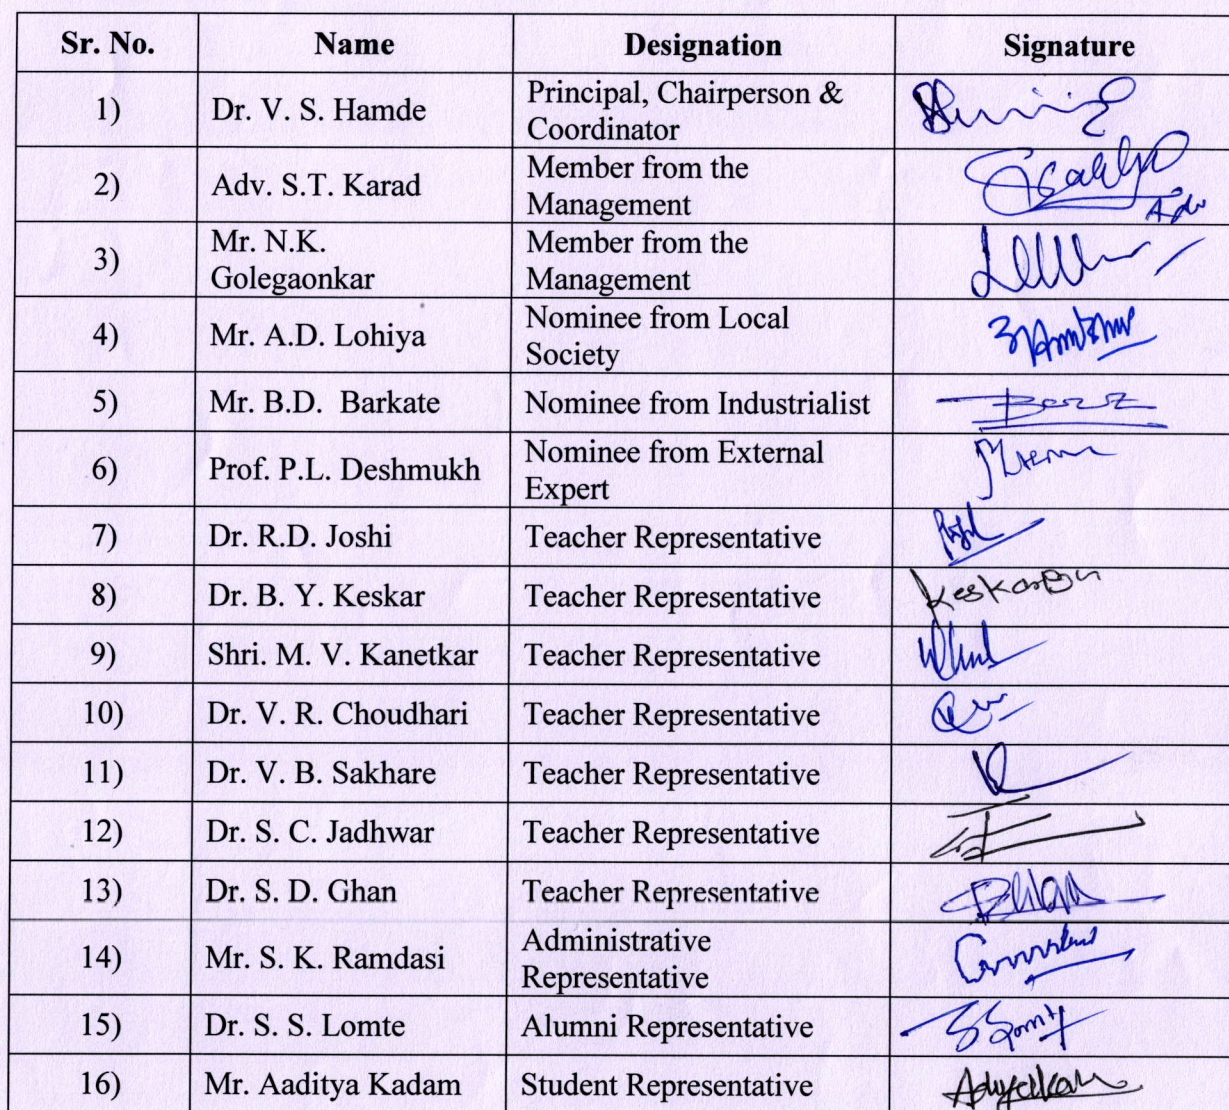 Sr. No. Name Designation Signature
1) Dr. V. S. Hamde Principal, Chairperson &
Coordinator
2) Adv. S.T. Karad Member from the
Management
3) Mr. N.K.
Golegaonkar Member from the
Management
4) Mr. A.D. Lohiya Nominee from Local
Society
5) Mr. B.D. Barkate Nominee from Industrialist
6) Prof. P.L. Deshmukh Nominee from External
Expert
7) Dr. R.D. Joshi Teacher Representative
8) Dr. B. Y. Keskar Teacher Representative KeskarBY
9) Shri. M. V. Kanetkar Teacher Representative
10) Dr. V. R. Choudhari Teacher Representative
11) Dr. V. B. Sakhare Teacher Representative
12) Dr. S. C. Jadhwar Teacher Representative
13) Dr. S. D. Ghan Teacher Representative
14) Mr. S. K. Ramdasi Administrative
Representative
15) Dr. S. S. Lomte Alumni Representative
16) Mr. Aaditya Kadam Student Representative